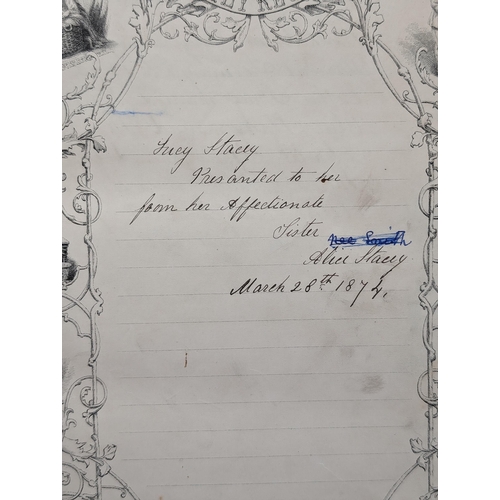 Lucy Stacey
Presanted to her
from her Affectionate
Sister
nee Smith
Alice Stacey
March 28th 1874,